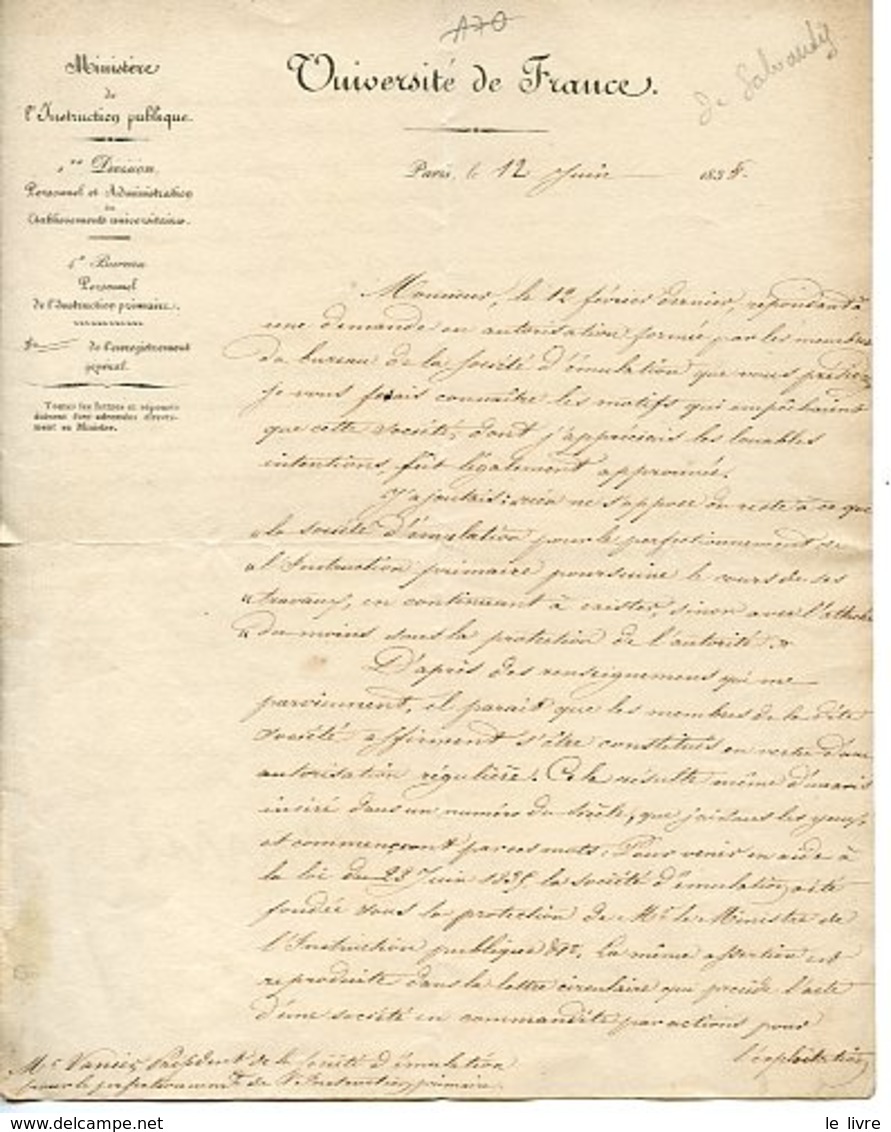 A70
de Salvandy
Ministère
de
l'Instruction publique.
1re Division.
Personnel et Administration
des
Etablissements universitaires.
4e Bureau
Personnel
de l'Instruction primaire.
de l'enregistrement
général.
Toutes les lettres et réponses
doivent être adressées directe-
ment au Ministre.
Université de France.
Paris, le 12 Juin 183
Monsieur, le 12 février dernier, répondant à
une demande en autorisation formée par les membres
du bureau de la Société d'émulation que vous présidez
je vous faisais connaître les motifs qui empêchaient
que cette société, dont j'appréciais les louables
intentions, fût légalement approuvée.
J'ajoutais : rien ne s'oppose du reste à ce que
« la société d'émulation pour le perfectionnement de
« l'Instruction primaire poursuive le cours de ses
« travaux, en continuant à exister, sinon avec l'attache
« du moins sous la protection de l'autorité. »
D'après des renseignemens qui me
parviennent, il parait que les membres de la dite
société affirment s'être constitués en vertu d'une
autorisation régulière. Cela résulte même d'un avis
inséré dans un numéro du Siècle, que j'ai sous les yeux,
et commençant par ces mots : Pour venir en aide à
la loi du 23 Juin 183 la société d'émulation a été
fondée sous la protection de Mr le Ministre de
l'Instruction publique &c. La même assertion est
reproduite dans la lettre circulaire qui précède l'acte
d'une société en commandite par actions pour
l'exploitation
Mr Vanier, Président de la société d'émulation
pour le perfectionnemt de l'Instruction primaire.
le livre